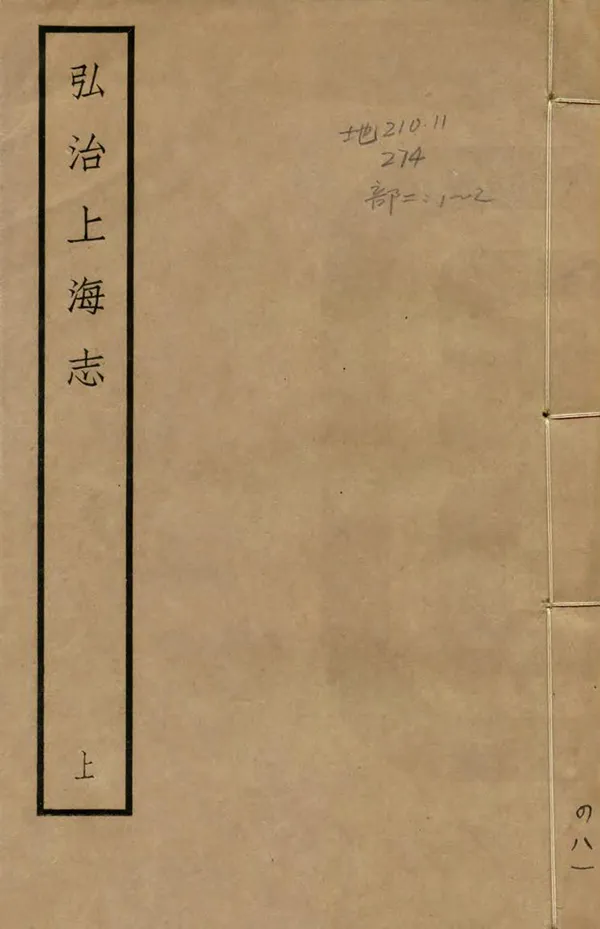 弘治上海志
上
地210.11
274
部二:1~2
の八一